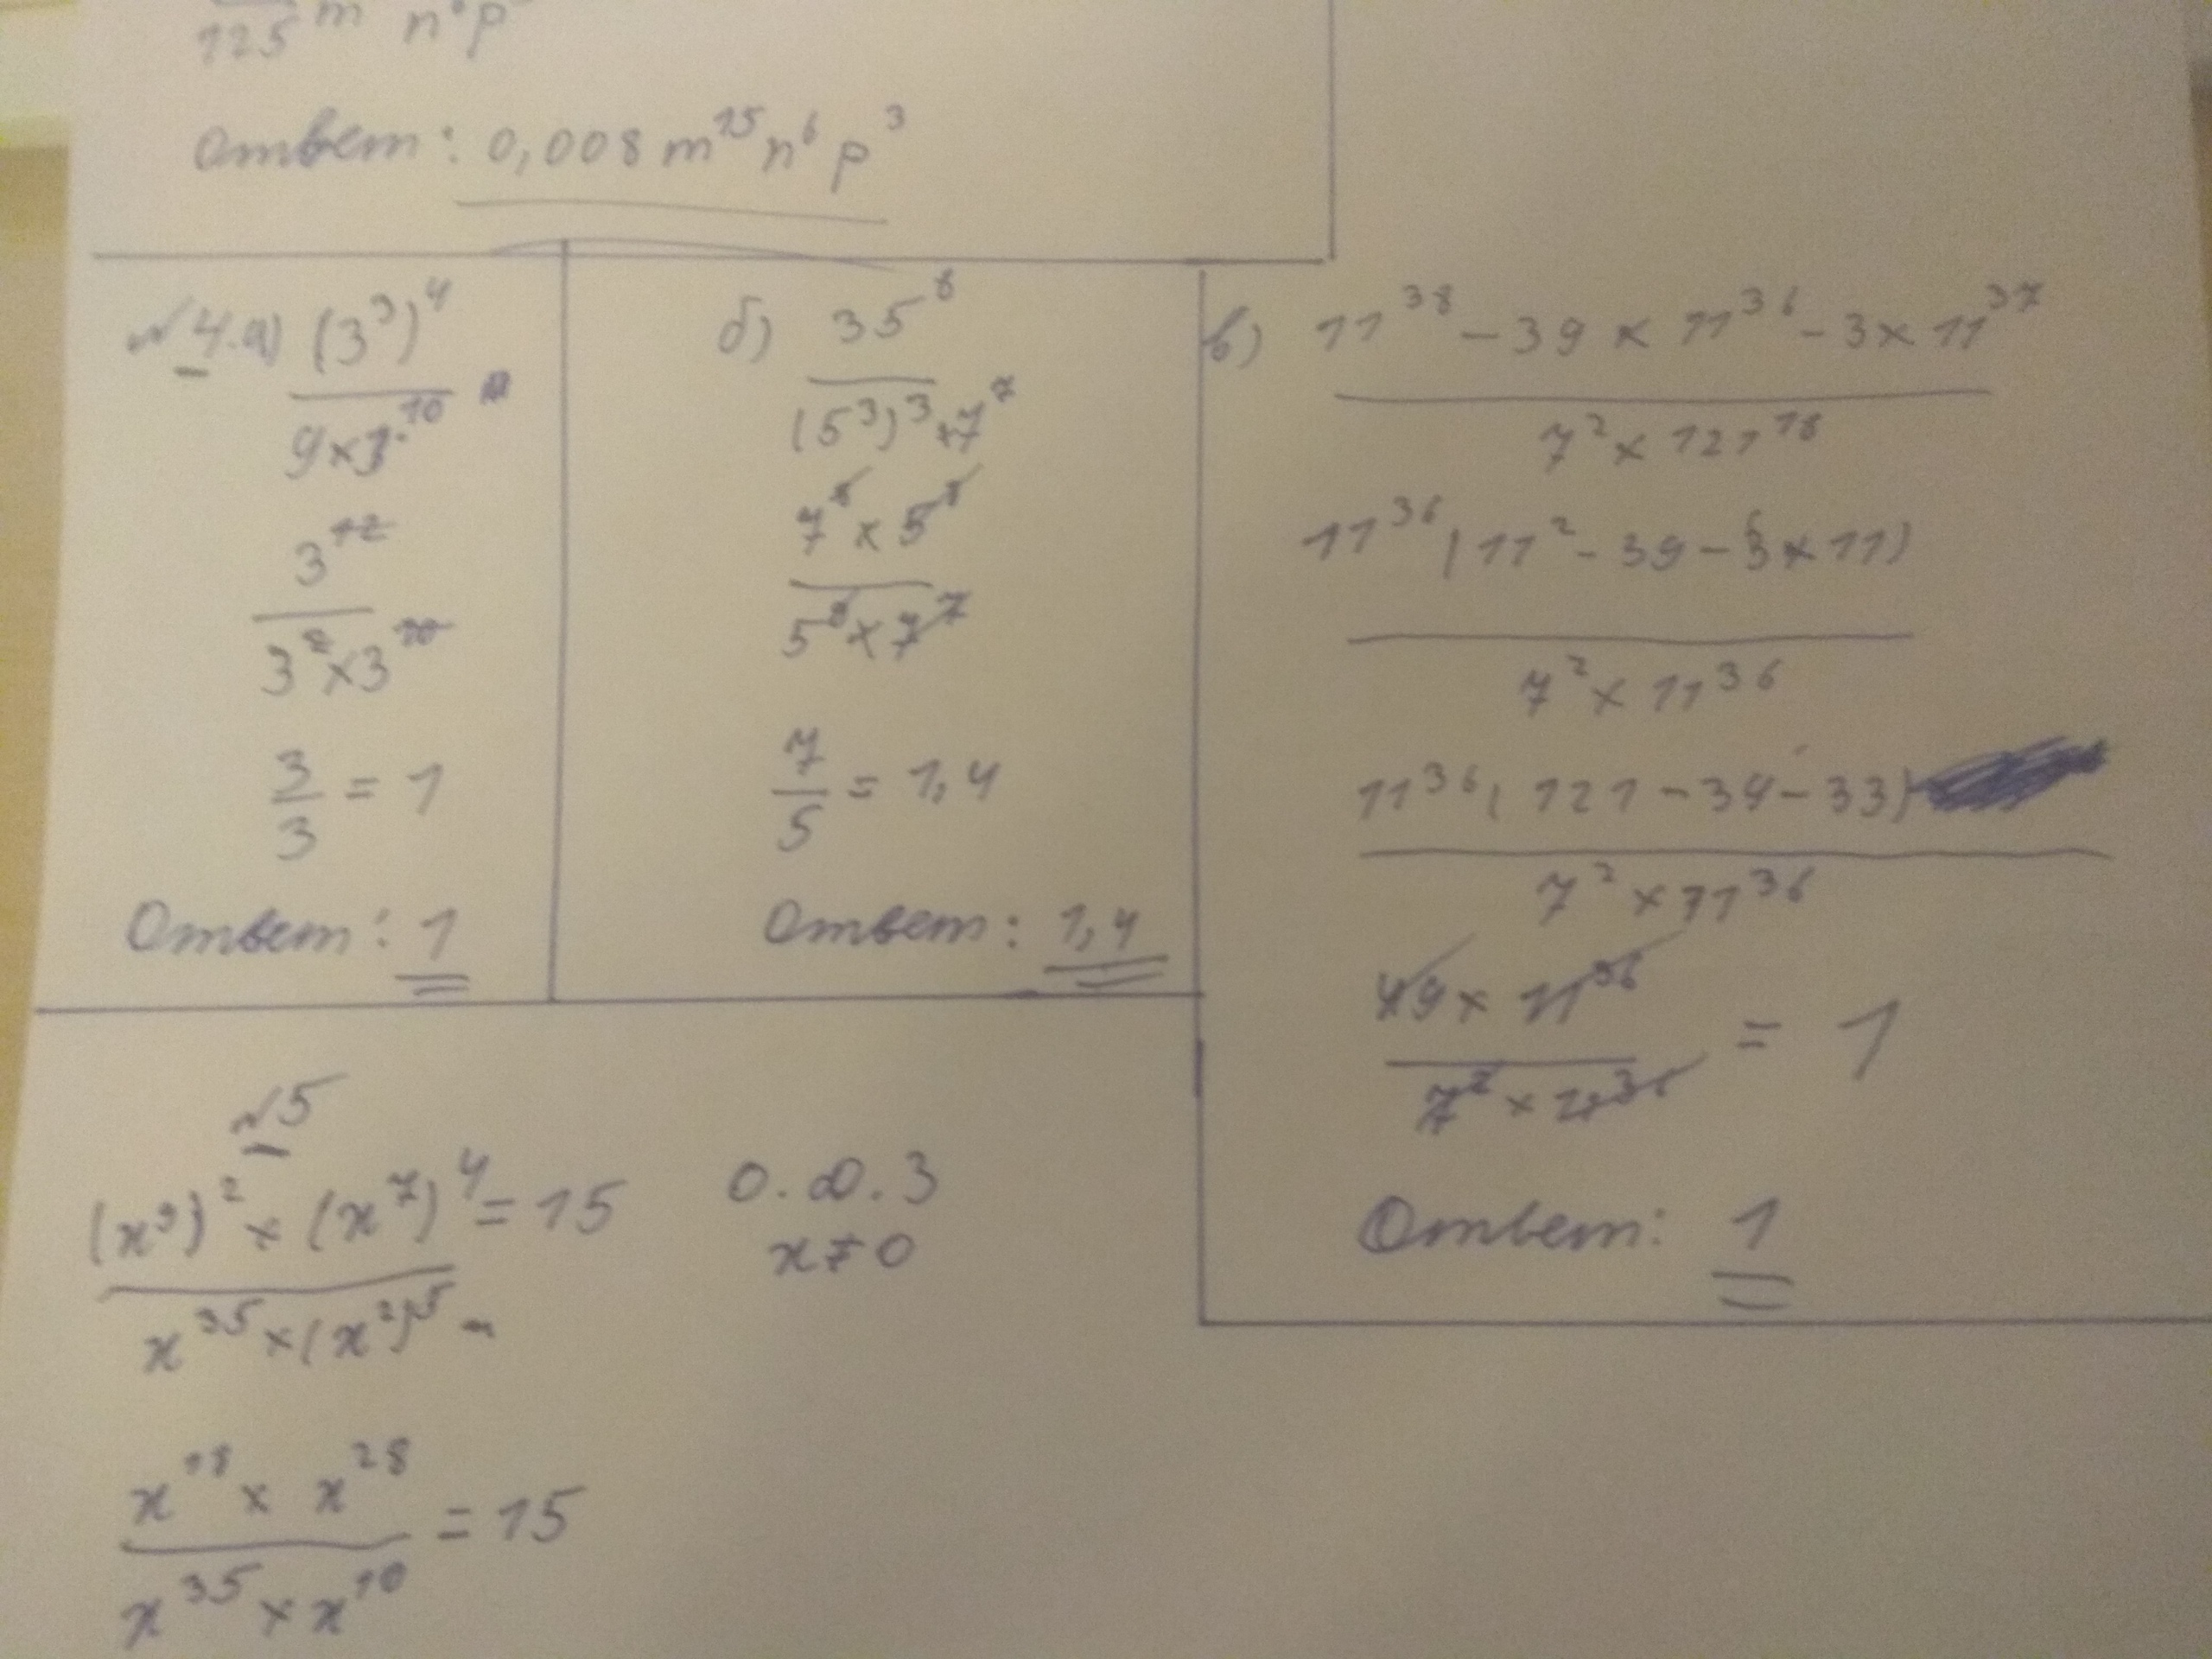 125 m n⁶p
Ответ: 0,008 m¹⁵n⁶p³
№4.а) (3³)⁴
9×3¹⁰
3¹²
3²×3¹⁰
3/3 = 1
Ответ: 1
б) 35⁸
(5³)³×7⁷
7⁸×5⁸
5⁹×7⁷
7/5 = 1,4
Ответ: 1,4
в) 11³⁸ – 39 × 11³⁶ – 3 × 11³⁷
7² × 121¹⁸
11³⁶(11² – 39 – 3 × 11)
7² × 11³⁶
11³⁶(121 – 39 – 33)
7² × 11³⁶
49 × 11³⁶
7² × 11³⁶ = 1
Ответ: 1
№5
(x⁹)² × (x⁷)⁴ = 15
x³⁵ × (x²)⁵
О.Д.З
x≠0
x¹⁸ × x²⁸
x³⁵ × x¹⁰ = 15